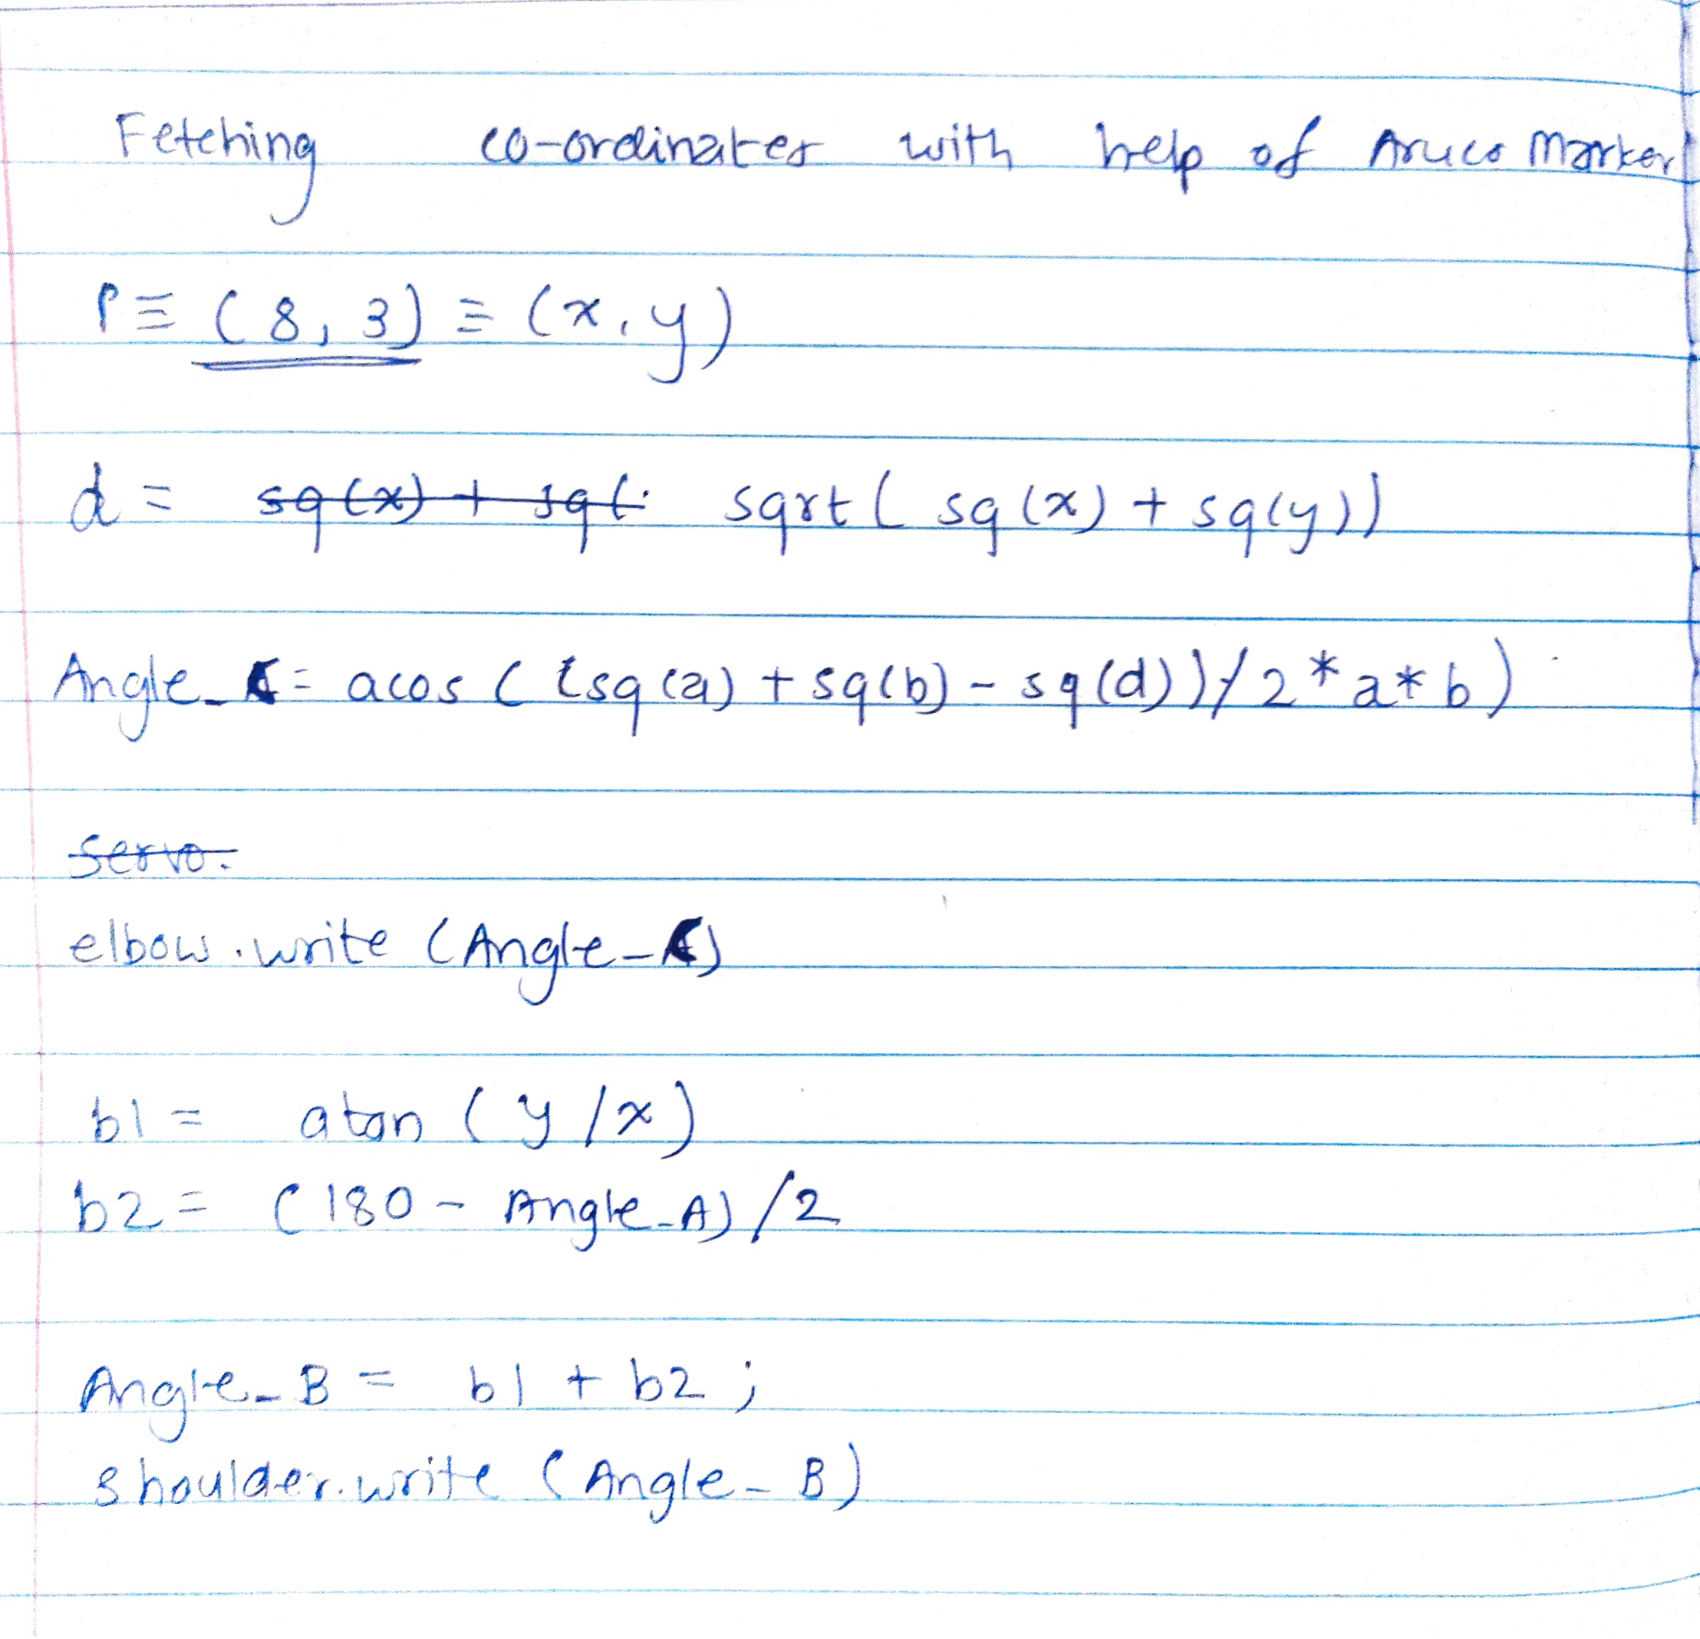 Fetching co-ordinates with help of Aruco Marker
P ≡ (8, 3) ≡ (x, y)
d = sq(x) + sq(. sqrt( sq(x) + sq(y))
Angle_C = acos ( (sq(a) + sq(b) - sq(d))/2*a*b)
servo.
elbow.write (Angle_C)
b1 = atan (y/x)
b2 = (180 - Angle_A)/2
Angle_B = b1 + b2 ;
shoulder.write (Angle_B)